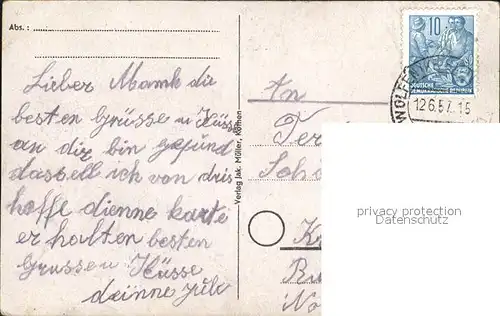 Abs.:
Lieber Mamk die
besten Grüsse u Küsse
an dir bin gesund
dasbell ich von dris
hoffe dienne karte
erhalten besten
Grussen u Küsse
deinne
Verlag Jak. Müller, Köthen
An
10
DEUTSCHE DEMOKRATISCHE REPUBLIK
WOLFEN
12.6.57.15
privacy protection
Datenschutz